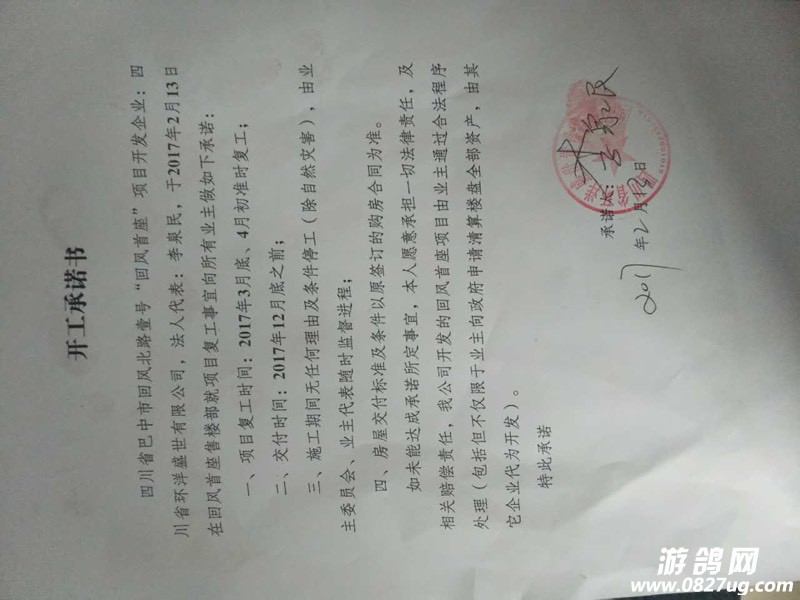 开工承诺书
四川省巴中市回风北路壹号“回风首座”项目开发企业：四
川省环洋盛世有限公司，法人代表：李泉民，于2017年2月13日
在回风首座售楼部就项目复工事宜向所有业主做如下承诺：
一、项目复工时间：2017年3月底、4月初准时复工；
二、交付时间：2017年12月底之前；
三、施工期间无任何理由及条件停工（除自然灾害），由业
主委员会、业主代表随时监督进程；
四、房屋交付标准及条件以原签订的购房合同为准。
如未能达成承诺所定事宜，本人愿意承担一切法律责任，及
相关赔偿责任，我公司开发的回风首座项目由业主通过合法程序
处理（包括但不仅限于业主向政府申请清算楼盘全部资产，由其
它企业代为开发）。
特此承诺
承诺人：李泉民
2017年2月13日
游鸽网
www.0827ug.com